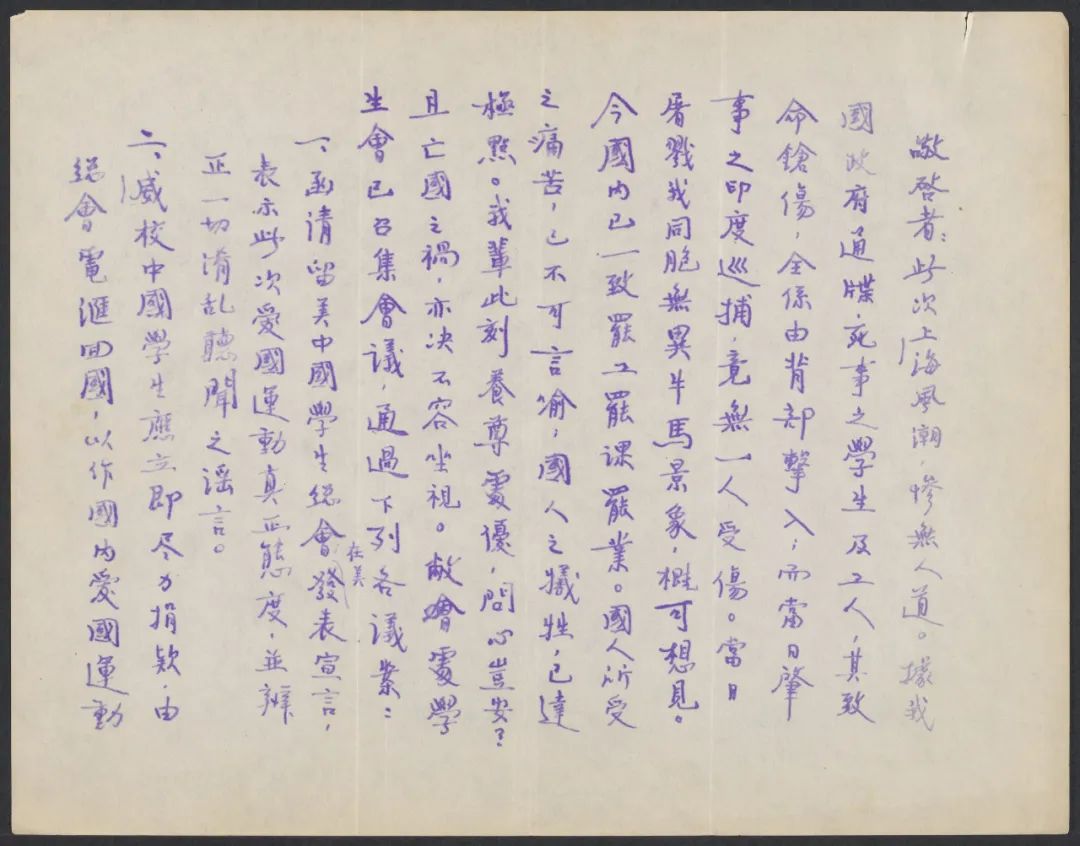 敬啓者：此次上海風潮，慘無人道。據我
國政府通牒，死事之學生及工人，其致
命鎗傷，全係由背部擊入；而當日肇
事之印度巡捕，竟無一人受傷。當日
屠戮我同胞無異牛馬景象，概可想見。
今國內已一致罷工罷課罷業。國人所受
之痛苦，已不可言喻，國人之犠牲，已達
極點。我輩此刻養尊處優，問心豈安？
且亡國之禍，亦决不容坐視。敝會處學
生會已召集會議，通過下列各議案：
一、函請留美中國學生總會在美發表宣言，
表示此次愛國運動真正態度，並辨
正一切淆乱聽聞之謡言。
二、威校中國學生應立即尽力捐欵，由
總會電滙回國，以作國內愛國運動